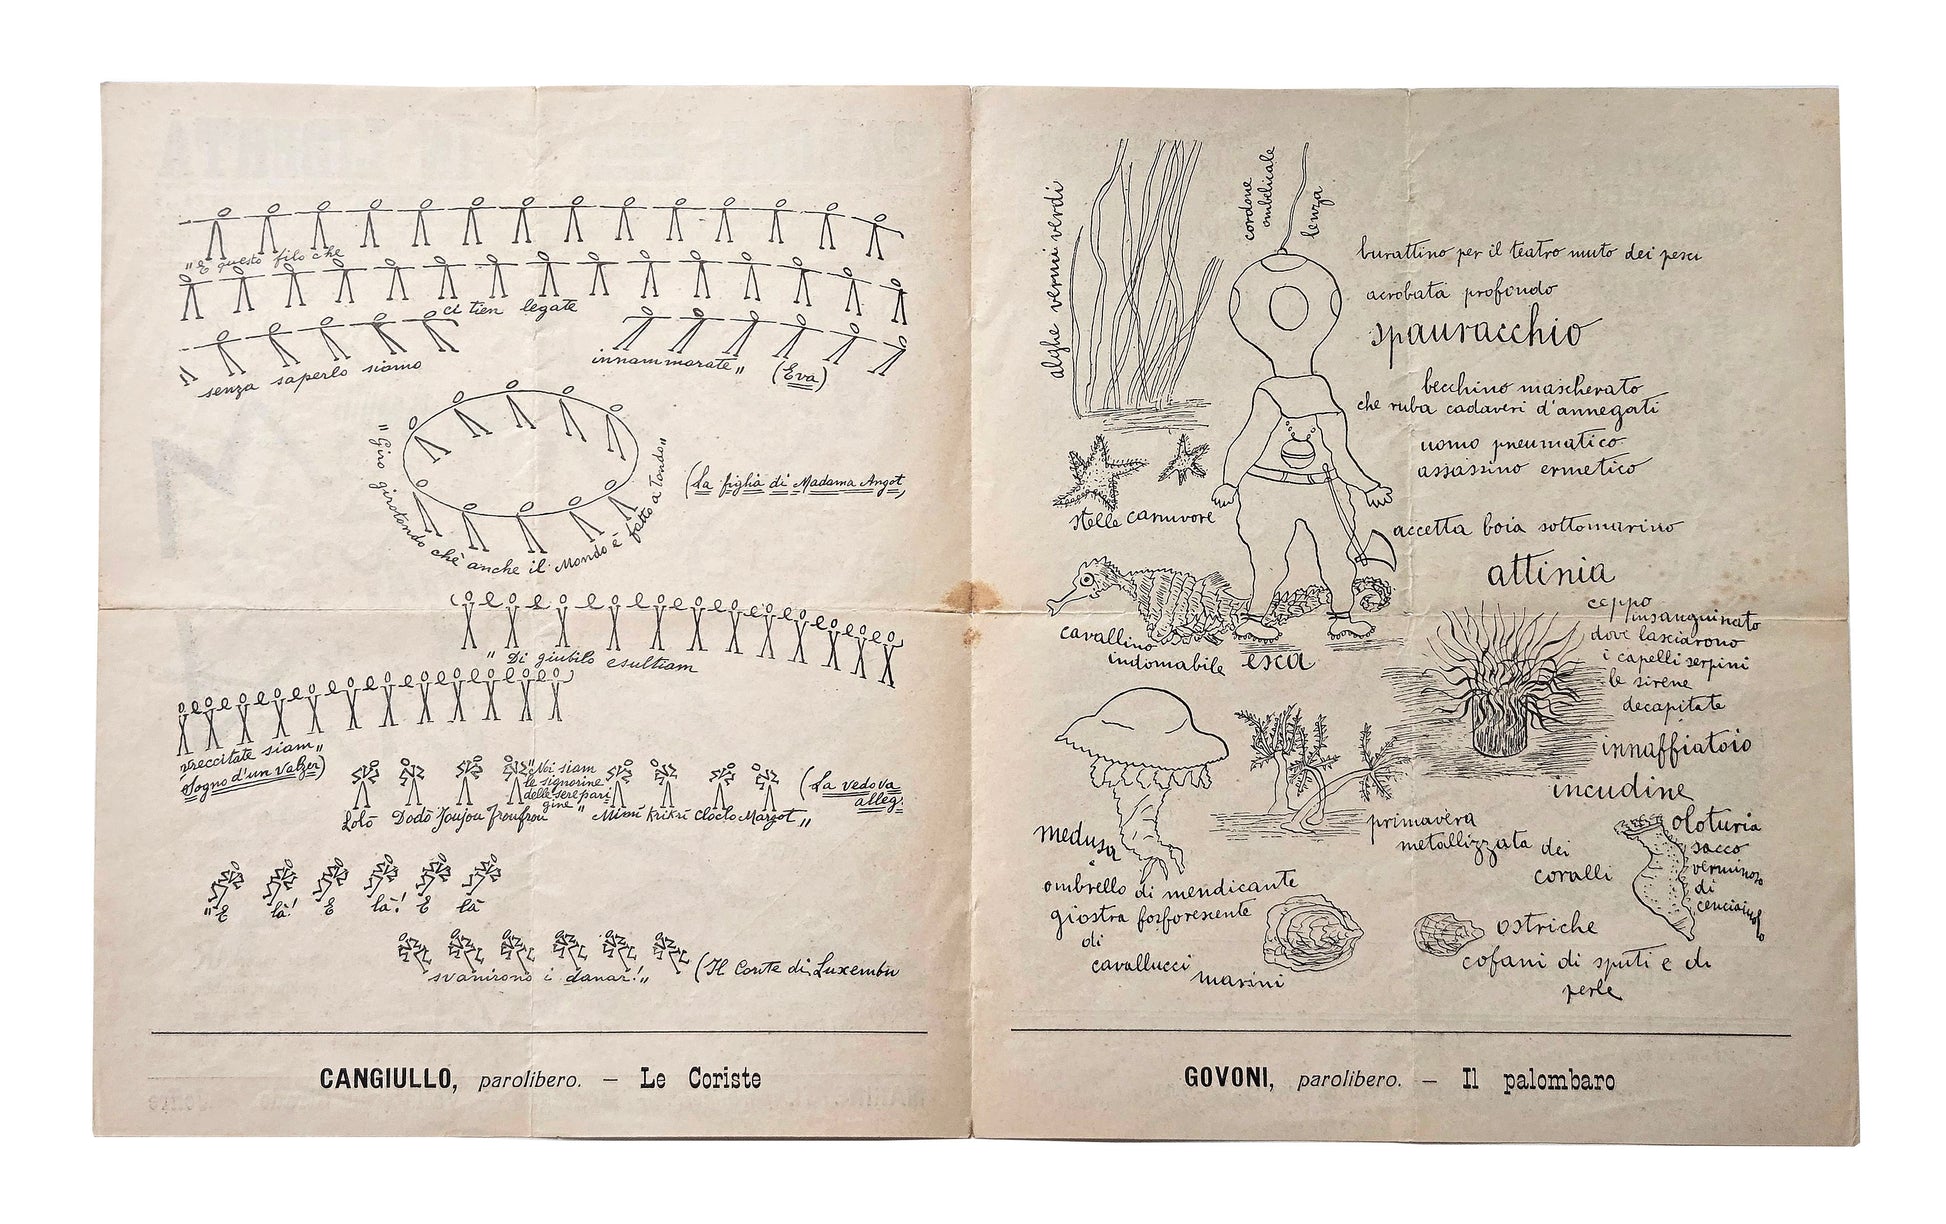 "È questo filo che
ci tien legate
senza saperlo siamo
innammorate" (Eva)
"Giro girotondo chè anche il Mondo è fatto a Tondo"
(La figlia di Madama Angot,
"Di giubilo esultiam
reccitate siam"
Sogno d'un Valzer)
"Noi siam
le signorine
delle sere pari
gine"
Lolò Dodò Joujou froufrou
Mimì Krikrì Clocló Margot"
(La vedova
alleg.
"È là! È là! È là
svanirono i danar!"
(Il Conte di Luxembu
CANGIULLO, parolibero. — Le Coriste
alghe vermi verdi
cordone
ombelicale
lenza
burattino per il teatro muto dei pesci
acrobata profondo
spauracchio
becchino mascherato
che ruba cadaveri d'annegati
uomo pneumatico
assassino ermetico
stelle carnivore
accetta boia sottomarino
attinia
ceppo
insanguinato
dove lasciarono
i capelli serpini
le sirene
decapitate
cavallino
indomabile
esca
innaffiatoio
incudine
medusa
è
ombrello di mendicante
giostra fosforescente
di
cavallucci
marini
primavera
metallizzata dei
coralli
oloturia
sacco
verminoso
di
cenciaiuolo
ostriche
cofani di sputi e di
perle
GOVONI, parolibero. — Il palombaro